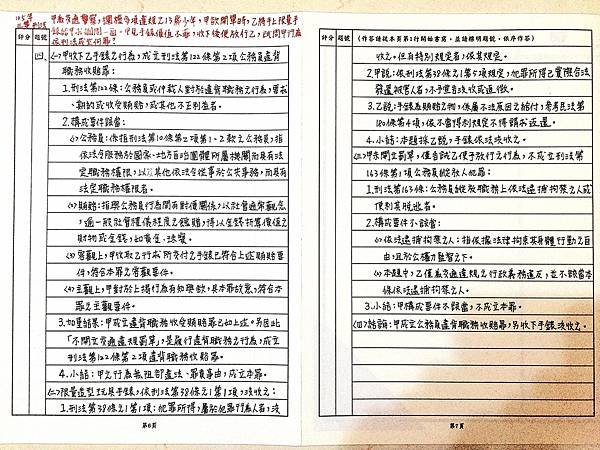 評分 題號
甲為交通警察,攔獲
評分 題號 (作答請從本頁第1行開始書寫,並請標明題號,依序作答)
四、 (一)甲收下乙手錶之行為,成立刑法第122條第2項公務員違背
職務收賄罪:
1.刑法第122條:公務員或仲裁人對於違背職務之行為,要求、
期約或收受賄賂,或其他不正利益者。
2.構成要件該當:
(1)公務員:係指刑法第10條第2項第1~2款之公務員,指
依法令服務於國家、地方自治團體所屬機關而具有法
定職務權限,以及其他依法令從事於公共事務,而具有
法定職務權限者。
(2)賄賂:指與公務員行為間有對價關係,以社會通常觀念,
逾一般社會禮儀程度之餽贈,得以金錢折算價值之
財物或金錢,如黃金、珠寶。
(3)客觀上,甲收取乙行求所交付之手錶已符合上述賄賂要
件,符合本罪之客觀要件。
(4)主觀上,甲對於上揭行為有知與欲,具本罪故意,符合本
罪之主觀要件。
3.加重結果:甲成立違背職務收受賄賂罪已如上述。另因此
「不開交通違規罰單」,是履行違背職務之行為,成立
刑法第122條第2項違背職務收賄罪。
4.小結:甲之行為無阻卻違法、罪責事由,成立本罪。
(二)限量造型玩具手錶,依刑法第38條之1第1項,沒收之:
1.刑法第38條之1第1項:犯罪所得,屬於犯罪行為人者,沒
第6頁
收之。但有特別規定者,依其規定。
2.甲說:依刑法第38條之1第5項規定,犯罪所得已實際合法
發還被害人者,不予宣告沒收或追徵。
3.乙說:手錶為賄賂之物,係屬不法原因之給付,參考民法第
180條第4項,依不當得利規定不得請求返還。
4.小結:本題採乙說,手錶依法沒收之。
(三)甲未開立罰單,僅告誡乙便予放行之行為,不成立刑法第
163條第1項公務員縱放人犯罪:
1.刑法第163條:公務員縱放職務上依法逮捕拘禁之人或
便利其脫逃者。
2.構成要件不該當:
(1)依法逮捕拘禁之人:指依據法律拘束其身體行動之自
由,且於公權力監督之下。
(2)本題中,乙僅為交通違規之行政義務違反,並不該當本
條依法逮捕拘禁之人。
3.小結:甲構成要件不該當,不成立本罪。
(四)結語:甲成立公務員違背職務收賄罪,另收下手錶沒收之。
第7頁